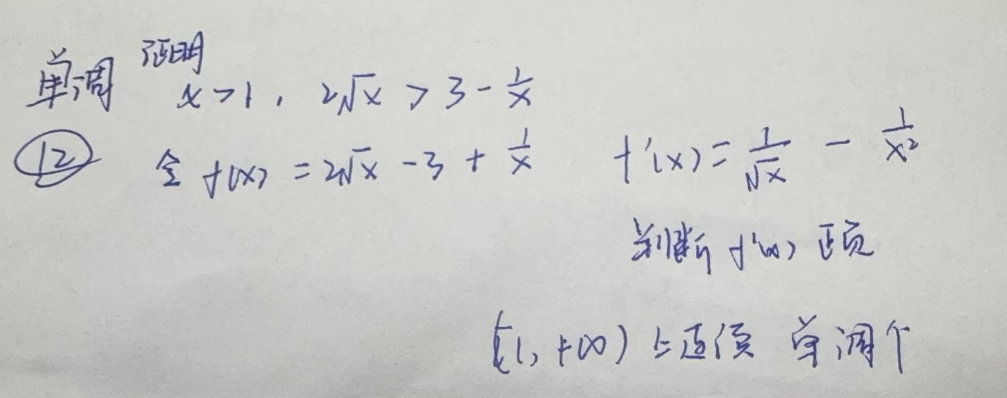 单调 证明 x>1, 2√x > 3 - 1/x
⑫ 令 f(x) = 2√x - 3 + 1/x f'(x) = 1/√x - 1/x²
判断 f'(x) 正负
[1, +∞) 上连续 单调个